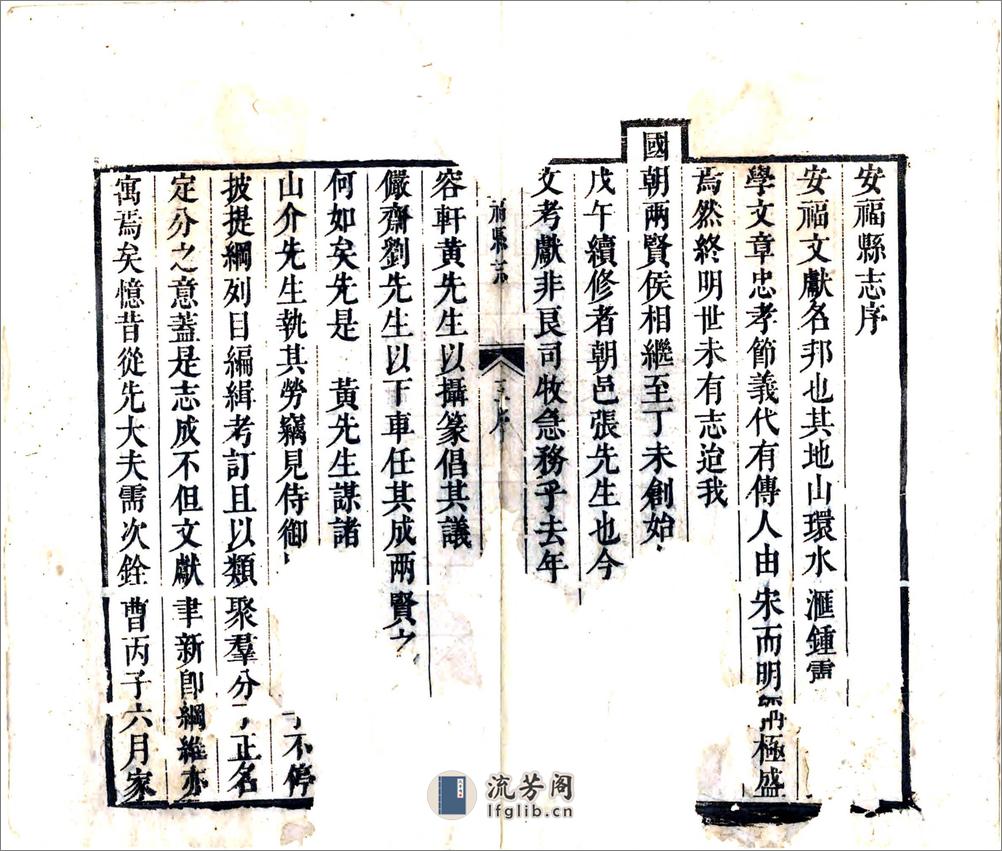 安福縣志序
安福文獻名邦也其地山環水滙鍾
學文章忠孝節義代有傳人由宋而明極盛
焉然終明世未有志迨我
國朝兩賢侯相繼至丁未創始
戊午續修者朝邑張先生也今
文考獻非良司牧急務乎去年
福縣志
序
容軒黃先生以攝篆倡其議
儼齋劉先生以下車任其成兩賢之
何如矣先是 黃先生謀諸
山介先生執其勞竊見侍御
不停
披提綱列目編緝考訂且以類聚羣分正名
定分之意蓋是志成不但文獻聿新卽綱維亦
寓焉矣憶昔從先大夫需次銓曹丙子六月家
流芳阁
lfglib.cn